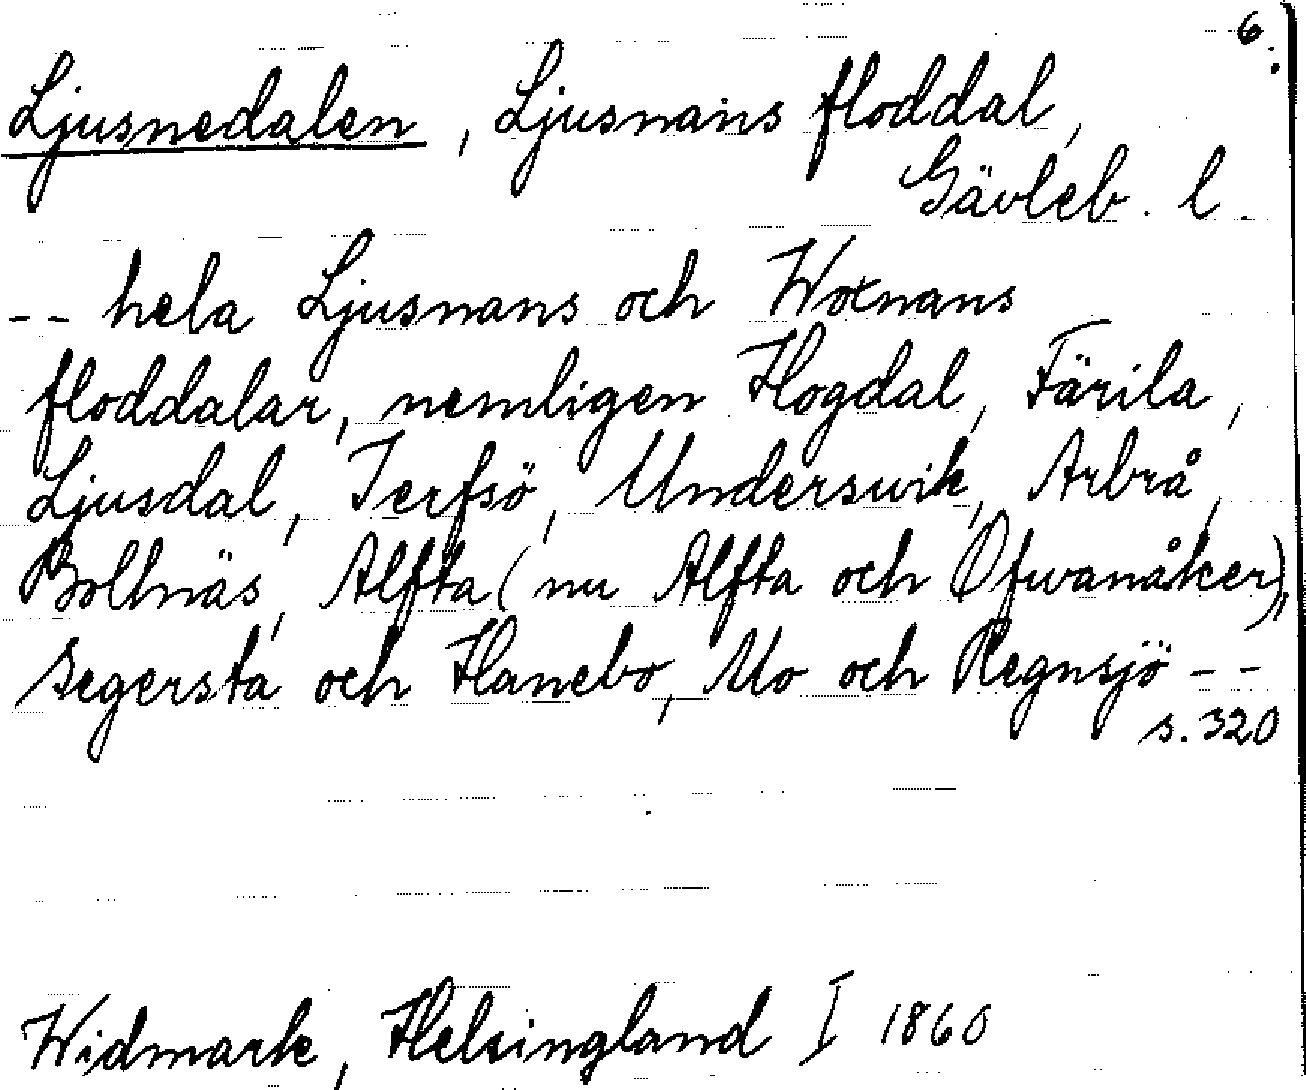 6.
Ljusnedalen, Ljusnans floddal,
Gävleb. l.
-- hela Ljusnans och Woxnans
floddalar, nemligen Hogdal, Färila,
Ljusdal, Jerfsö, Underswik, Arbrå,
Bollnäs, Alfta (nu Alfta och Ofwanåker),
Segersta och Hanebo, Mo och Regnsjö --
s. 320
Widmark, Helsingland I 1860